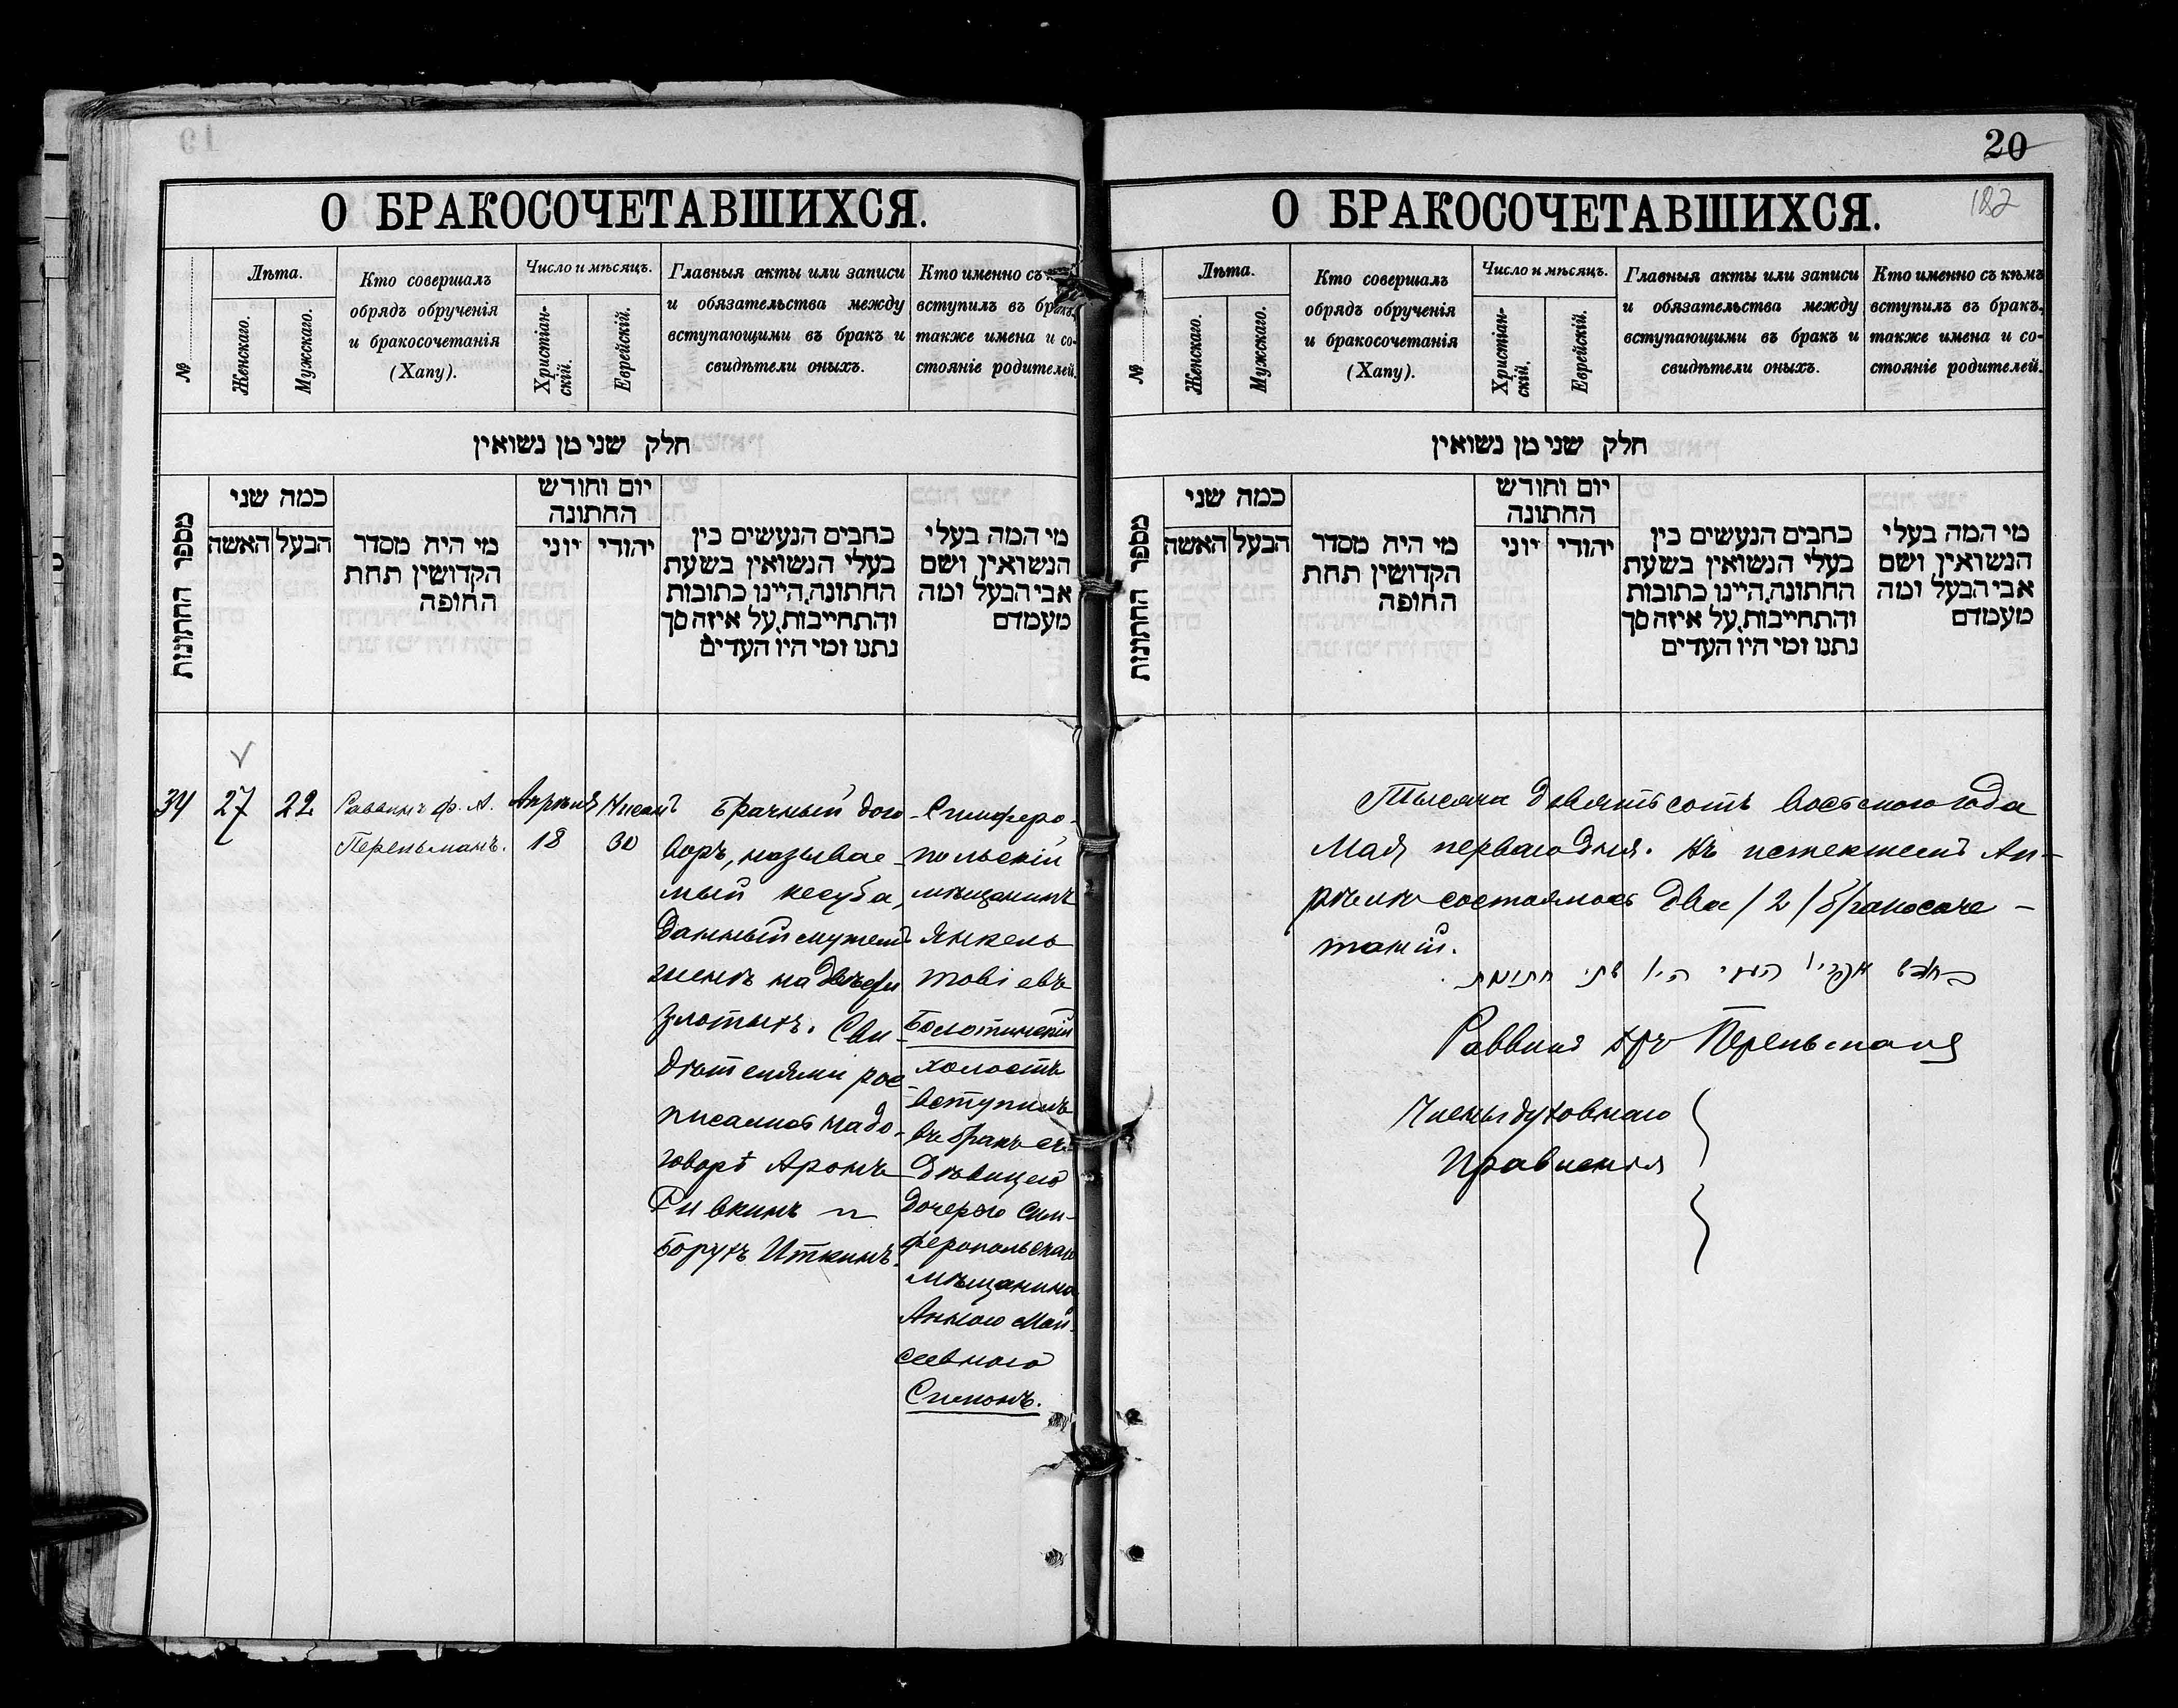 20
182
О БРАКОСОЧЕТАВШИХСЯ.
№
Лѣта.
Женскаго.
Мужскаго.
Кто совершалъ
обрядъ обрученія
и бракосочетанія
(Хапу).
Число и мѣсяцъ.
Христіан-
скій.
Еврейскій.
Главныя акты или записи
и обязательства между
вступающими въ бракъ и
свидѣтели оныхъ.
Кто именно съ
вступилъ въ бракъ,
также имена и со-
стояніе родителей.
חלק שני מן נשואין
מספר החתונות
כמה שני
האשה
הבעל
מי היה מסדר
הקדושין תחת
החופה
יום וחודש
החתונה
יוני
יהודי
כתבים הנעשים בין
בעלי הנשואין בשעת
החתונה, היינו כתובות
והתחייבות, על איזה סך
נתנו ומי היו העדים
מי המה בעלי
הנשואין ושם
אבי הבעל ומה
מעמדם
34
27
22
Раввинъ Ф. А.
Перельманъ.
Апрѣля
18
Нисанъ
30
Брачный дого-
воръ, называе-
мый кесуба,
данный мужемъ
женѣ на двѣсти
злотыхъ. Сви-
дѣтелями рос-
писались на до-
говорѣ Аронъ
Ривкинъ и
Борухъ Иткинъ.
Симферо-
польскій
мѣщанинъ
Янкель
Товіевъ
Болотинскій
холостъ
вступилъ
въ бракъ съ
дѣвицею
дочерью Сим-
феропольскаго
мѣщанина
Анною Мои-
сеевною
Симонъ.
О БРАКОСОЧЕТАВШИХСЯ.
№
Лѣта.
Женскаго.
Мужскаго.
Кто совершалъ
обрядъ обрученія
и бракосочетанія
(Хапу).
Число и мѣсяцъ.
Христіан-
скій.
Еврейскій.
Главныя акты или записи
и обязательства между
вступающими въ бракъ и
свидѣтели оныхъ.
Кто именно съ кѣмъ
вступилъ въ бракъ,
также имена и со-
стояніе родителей.
חלק שני מן נשואין
מספר החתונות
כמה שני
האשה
הבעל
מי היה מסדר
הקדושין תחת
החופה
יום וחודש
החתונה
יוני
יהודי
כתבים הנעשים בין
בעלי הנשואין בשעת
החתונה, היינו כתובות
והתחייבות, על איזה סך
נתנו ומי היו העדים
מי המה בעלי
הנשואין ושם
אבי הבעל ומה
מעמדם
Тысяча девятьсотъ восьмого года
Мая перваго дня. Въ истекшемъ Ап-
рѣлѣ состоялось два /2/ бракосоче-
таній.
בחדש אפריל היו שתי חתונות
Раввинъ Перельманъ
Члены духовнаго
Правленія